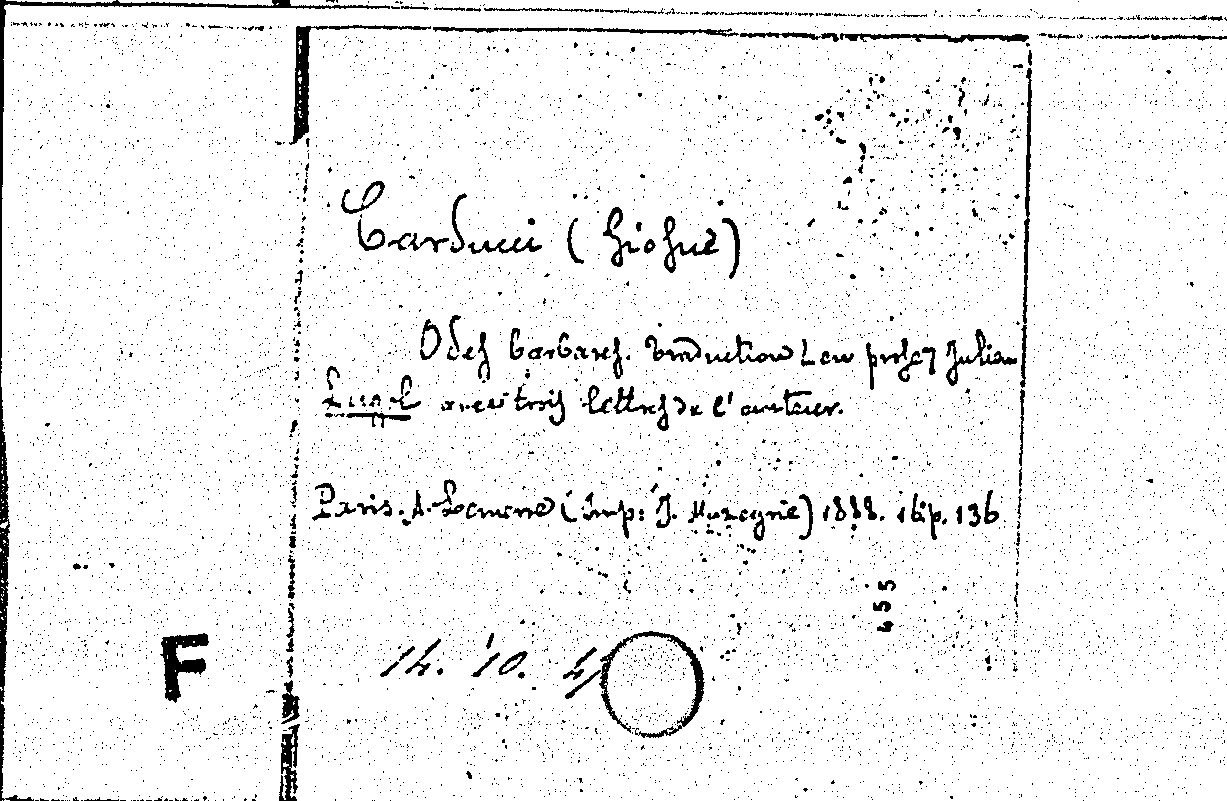 Carducci (Giosuè)
Odes barbares. Traduction en prose, Julien
Lugol avec trois lettres de l'auteur.
Paris. A. Lemerre (imp: J. Mozagrie) 1888. 16° p. 136
455
F
14. 10. 4